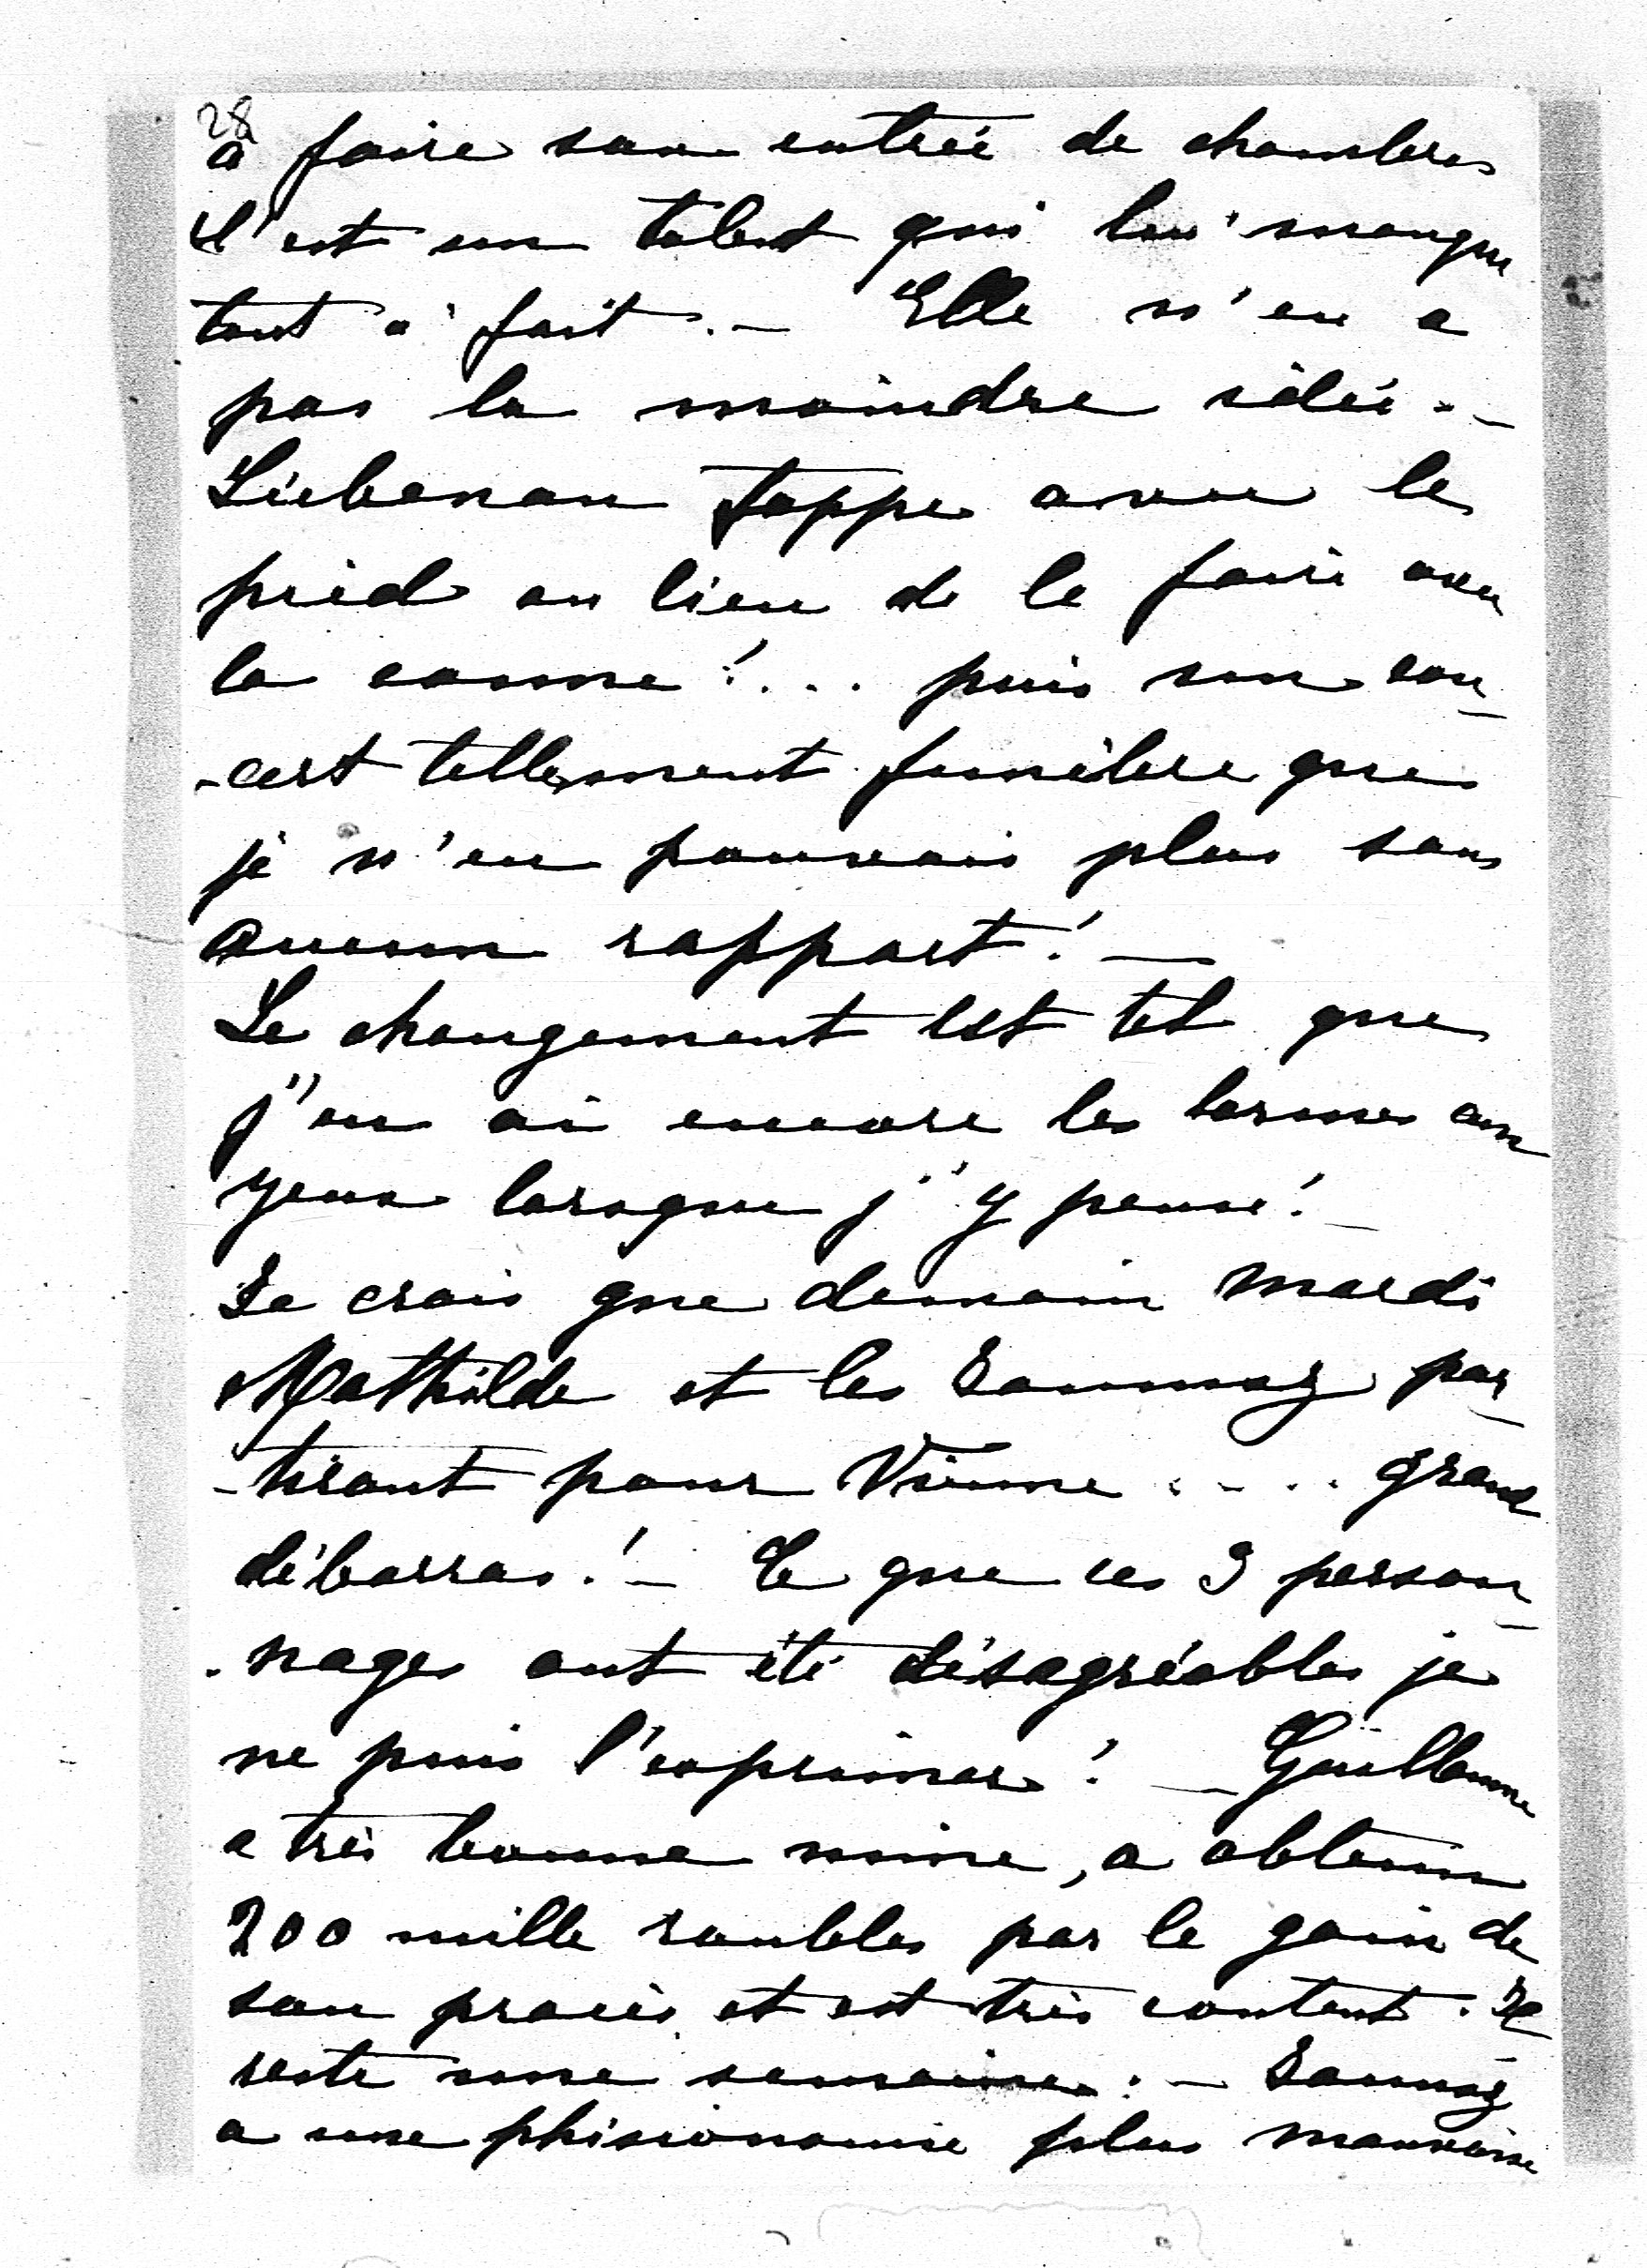 28
à faire son entrée de chambres
C'est un talent qui lui manque
tout à fait. — Elle n'en a
pas la moindre idée. —
Liebenau tappe avec le
pied au lieu de le faire avec
la canne!... puis son con-
-cert tellement funèbre que
je n'en pouvais plus sous
aucun rapport! —
Le changement est tel que
j'en ai encore les larmes aux
yeux lorsque j'y pense! —
Je crois que demain Mardi
Mathilde et les Saumaz par-
-tiront pour Vienne .... grand
débarras! — Ce que ces 3 person-
-nages ont été désagréables je
ne puis l'exprimer! — Guillaume
a très bonne mine, a obtenu
200 mille roubles par le gain de
son procès et est très content. Il
reste une semaine. — Saumaz
a une phisionomie plus mauvaise